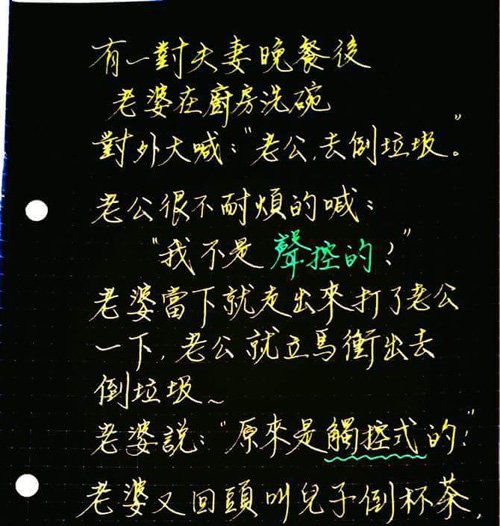 有一對夫妻晚餐後
老婆在廚房洗碗
對外大喊："老公,去倒垃圾。"
老公很不耐煩的喊：
"我不是聲控的!"
老婆當下就走出來打了老公
一下,老公就立馬衝出去
倒垃圾~
老婆說："原來是觸控式的!"
老婆又回頭叫兒子倒杯茶,